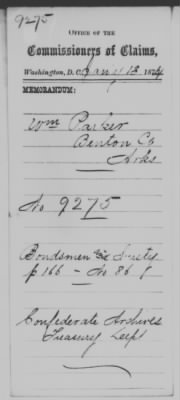 9275
OFFICE OF THE
Commissioners of Claims,
Washington, D.C. Jany 13, 1874
MEMORANDUM:
Wm Parker
Benton Co
Arks
No 9275
Bondsmen
p 166 - No 86
Confederate Archives
Treasury Dept